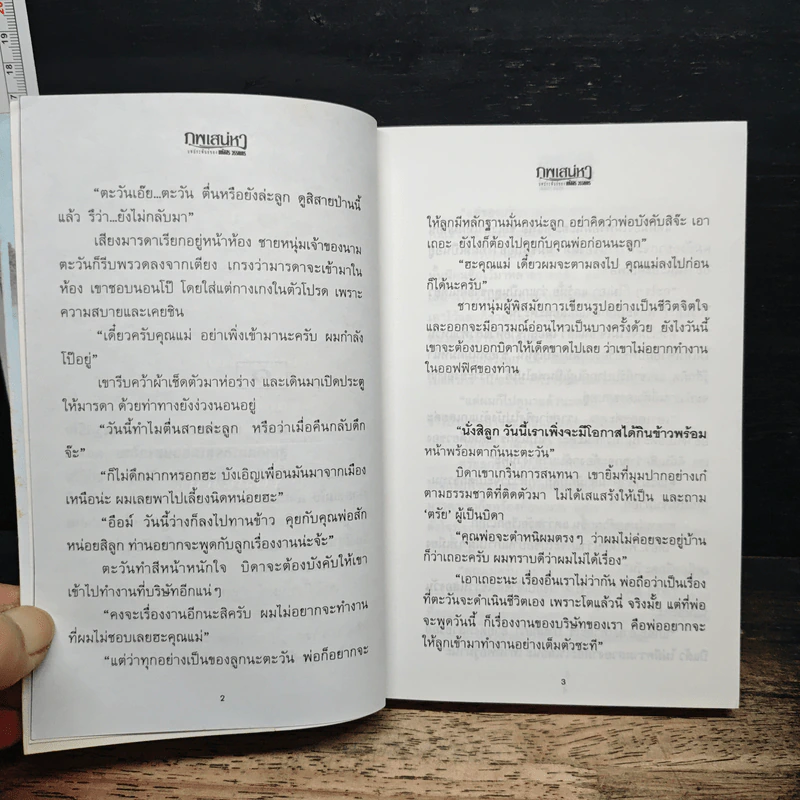 20
19
18
ภพเสน่หา
“ตะวันเอ๊ย...ตะวัน ตื่นหรือยังล่ะลูก ดูสิสายป่านนี้
แล้ว รึว่า...ยังไม่กลับมา”
เสียงมารดาเรียกอยู่หน้าห้อง ชายหนุ่มเจ้าของนาม
ตะวันก็รีบพรวดลงจากเตียง เกรงว่ามารดาจะเข้ามาใน
ห้อง เขาชอบนอนโป๊ โดยใส่แต่กางเกงในตัวโปรด เพราะ
ความสบายและเคยชิน
“เดี๋ยวครับคุณแม่ อย่าเพิ่งเข้ามานะครับ ผมกำลัง
โป๊อยู่”
เขารีบคว้าผ้าเช็ดตัวมาห่อร่าง และเดินมาเปิดประตู
ให้มารดา ด้วยท่าทางยังง่วงนอนอยู่
“วันนี้ทำไมตื่นสายล่ะลูก หรือว่าเมื่อคืนกลับดึก
จ๊ะ”
“ก็ไม่ดึกมากหรอกฮะ บังเอิญเพื่อนมันมาจากเมือง
เหนือน่ะ ผมเลยพาไปเลี้ยงนิดหน่อยฮะ”
“อือม์ วันนี้ว่างก็ลงไปทานข้าว คุยกับคุณพ่อสัก
หน่อยสิลูก ท่านอยากจะพูดกับลูกเรื่องงานน่ะจ้ะ”
ตะวันทำสีหน้าหนักใจ บิดาจะต้องบังคับให้เขา
เข้าไปทำงานที่บริษัทอีกแน่ๆ
“คงจะเรื่องงานอีกนะสิครับ ผมไม่อยากจะทำงาน
ที่ผมไม่ชอบเลยฮะคุณแม่”
“แต่ว่าทุกอย่างเป็นของลูกนะตะวัน พ่อก็อยากจะ
2
ภพเสน่หา
ให้ลูกมีหลักฐานมั่นคงน่ะลูก อย่าคิดว่าพ่อบังคับสิจ๊ะ เอา
เถอะ ยังไงก็ต้องไปคุยกับคุณพ่อก่อนนะลูก”
“ฮะคุณแม่ เดี๋ยวผมจะตามลงไป คุณแม่ลงไปก่อน
ก็ได้นะครับ”
ชายหนุ่มผู้พิสมัยการเขียนรูปอย่างเป็นชีวิตจิตใจ
และออกจะมีอารมณ์อ่อนไหวเป็นบางครั้งด้วย ยังไงวันนี้
เขาจะต้องบอกบิดาให้เด็ดขาดไปเลย ว่าเขาไม่อยากทำงาน
ในออฟฟิศของท่าน
“นั่งสิลูก วันนี้เราเพิ่งจะมีโอกาสได้กินข้าวพร้อม
หน้าพร้อมตากันนะตะวัน”
บิดาเขาเกริ่นการสนทนา เขายิ้มที่มุมปากอย่างเก๋
ตามธรรมชาติที่ติดตัวมา ไม่ได้เสแสร้งให้เป็น และถาม
‘ตรัย’ ผู้เป็นบิดา
“คุณพ่อจะตำหนิผมตรงๆ ว่าผมไม่ค่อยจะอยู่บ้าน
ก็ว่าเถอะครับ ผมทราบดีว่าผมไม่ได้เรื่อง”
“เอาเถอะนะ เรื่องอื่นเราไม่ว่ากัน พ่อถือว่าเป็นเรื่อง
ที่ตะวันจะดำเนินชีวิตเอง เพราะโตแล้วนี่ จริงมั้ย แต่ที่พ่อ
จะพูดวันนี้ ก็เรื่องงานของบริษัทของเรา คือพ่ออยากจะ
ให้ลูกเข้ามาทำงานอย่างเต็มตัวซะที”
3